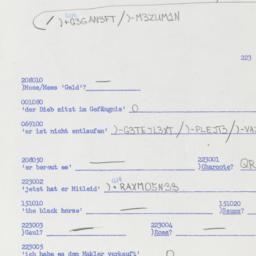 )+G3GAN3FT/)-M3ZUM1N
223
208010
)Hose/Nees 'Geld'?
001080
'der Dieb sitzt im Gefängnis' O
069100
'er ist nicht entlaufen' )-G3TEJL3XT/)-PLEJT3/)-VA
208030 223001
'er
223002
'jetzt hat er Mitleid' )+RAXMO5N33
151010 151020
'the black horse'
223003 223004
)Gaul? )Ross?
223005
'ich habe es dem Makler verkauft' O